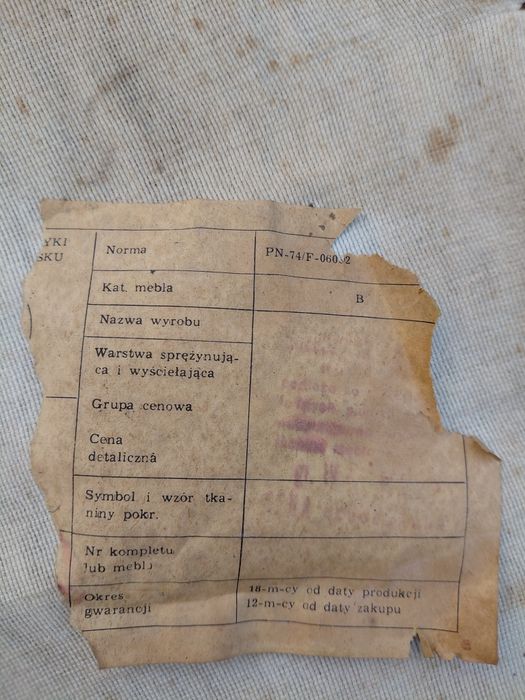 YKI
SKU
Norma
PN-74/F-06032
Kat. mebla
B
Nazwa wyrobu
Warstwa sprężynują-
ca i wyściełająca
Grupa cenowa
Cena
detaliczna
Symbol i wzór tka-
niny pokr.
Nr kompletu
lub mebla
Okres
gwarancji
18-m-cy od daty produkcji
12-m-cy od daty zakupu